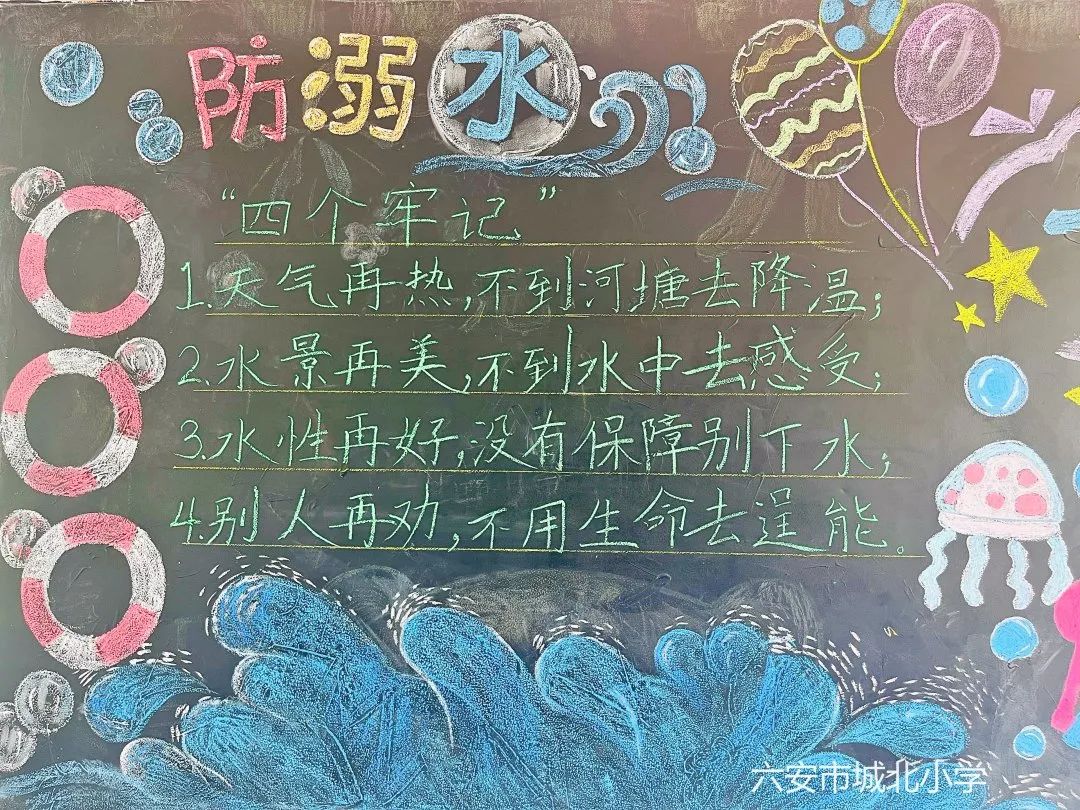 防溺水
“四个牢记”
1.天气再热,不到河塘去降温;
2.水景再美,不到水中去感受;
3.水性再好,没有保障别下水;
4.别人再劝,不用生命去逞能。
六安市城北小学